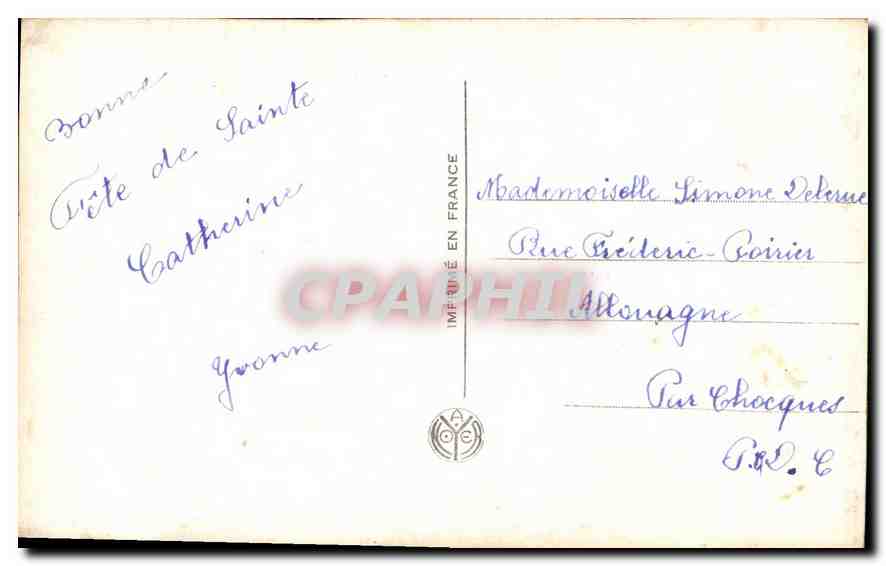 Bonne
Fête de Sainte
Catherine
Yvonne
IMPRIMÉ EN FRANCE
Mademoiselle Simone Delerue
Rue Fréderic-Poirier
Allouagne
Par Chocques
P.D.C
CPAPHIL